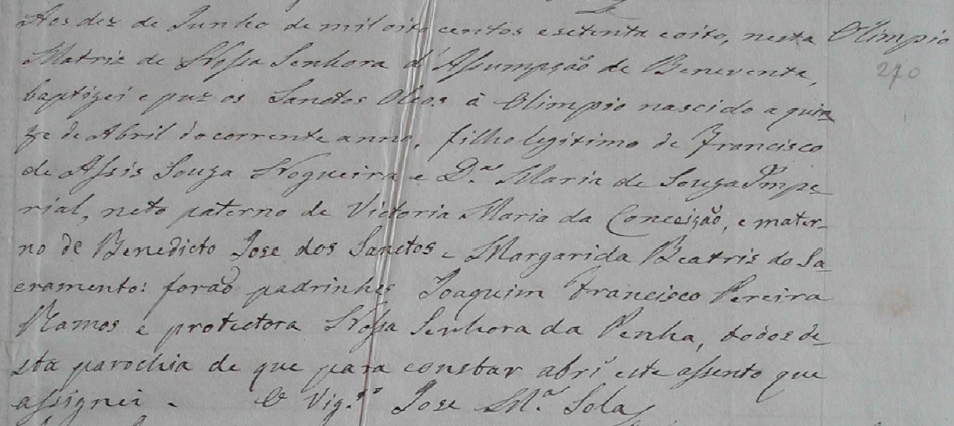 Aos dez de Junho de mil oito centos e setenta e oito, nesta
Olimpio
270
Matriz de Nossa Senhora d'Assumpção de Benevente,
baptizei e puz os Sanctos Oleos à Olimpio nascido a quin
ze de Abril do corrente anno, filho legitimo de Francisco
de Assis Souza Nogueira e D.ª Maria de Souza Impe-
rial, neto paterno de Victoria Maria da Conceição, e mater-
no de Benedicto Jose dos Sanctos e Margarida Beatris do Sa-
cramento: forão padrinhos Joaquim Francisco Pereira
Ramos e protectora Nossa Senhora da Penha, todos de-
sta parochia de que para constar abri este assento que
assignei. O Vig.º Jose M.ª Sola